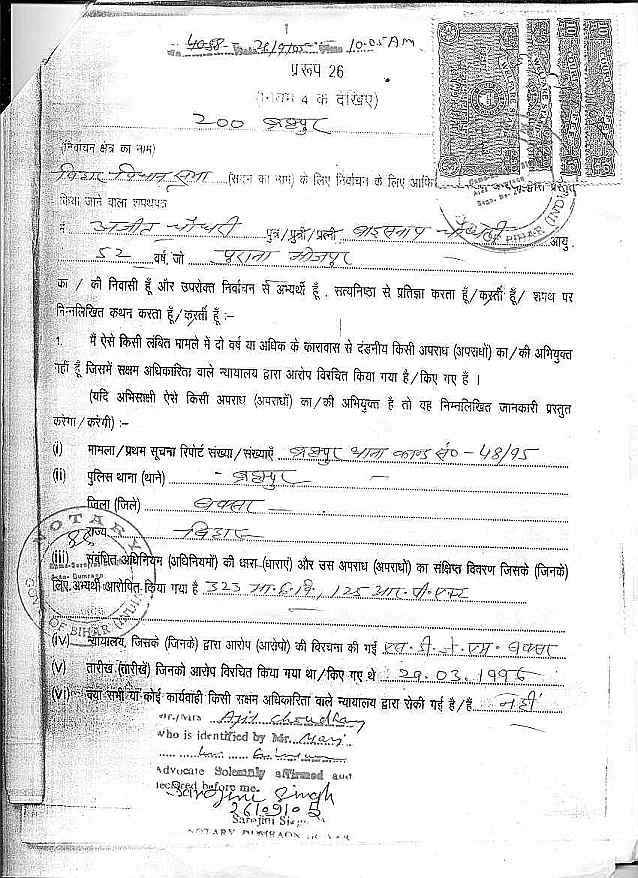 1
No. 4058 Date 26/9/05 Time 10:05 AM
प्ररूप 26
(नियम 4 क देखिए)
200 ब्रह्मपुर
(निवाचन क्षेत्र का नाम)
बिहार विधान सभा (सदन का नाम) के लिए निर्वाचन के लिए
प्रस्तुत
किया जाने वाला शपथपत्र
मैं अजीत चौधरी पुत्र/पुत्री/पत्नी चौधरी आयु
52 वर्ष, जो पुराना भोजपुर
का / की निवासी हूँ और उपरोक्त निर्वाचन से अभ्यर्थी हूँ , सत्यनिष्ठा से प्रतिज्ञा करता हूँ/करती हूँ/ शपथ पर
निम्नलिखित कथन करता हूँ/करती हूँ :-
1. मैं ऐसे किसी लंबित मामले मे दो वर्ष या अधिक के कारावास से दंडनीय किसी अपराध (अपराधों) का/की अभियुक्त
नहीं हूँ जिसमें सक्षम अधिकारिता वाले न्यायालय द्वारा आरोप विरचित किया गया है/किए गए हैं ।
(यदि अभिसाक्षी ऐसे किसी अपराध (अपराधों) का/की अभियुक्त है तो वह निम्नलिखित जानकारी प्रस्तुत
करेगा/करेगी) :-
(i) मामला/प्रथम सूचना रिपोर्ट संख्या/संख्याएँ ब्रह्मपुर थाना काण्ड सं०-48/95
(ii) पुलिस थाना (थाने) - ब्रह्मपुर -
जिला (जिले) बक्सर
राज्य बिहार
(iii) संबंधित अधिनियम (अधिनियमों) की धारा-(धाराएं) और उस अपराध (अपराधों) का संक्षिप्त विवरण जिसके (जिनके)
लिए अभ्यर्थी आरोपित किया गया है 323 भा.द.वि., 125 आर.पी.एक्ट
(iv) न्यायालय, जिसके (जिनके) द्वारा आरोप (आरोपो) की विरचना की गई एस.डी.जे.एम. बक्सर
(v) तारीख (तारीखें) जिनको आरोप विरचित किया गया था/किए गए थे 29.03.1996
(vi) क्या सभी या कोई कार्यवाही किसी सक्षम अधिकारिता वाले न्यायालय द्वारा रोकी गई है/हैं नहीं
Mr./Mrs Ajit Choudhary
who is identified by Mr.
Advocate Solemnly affirmed and
declared before me.
Sarojini Singh
26/09/05
Sarojini Singh
NOTARY DUMRAON
NOTARY
GOVT. OF BIHAR (INDIA)
OF BIHAR (INDIA)